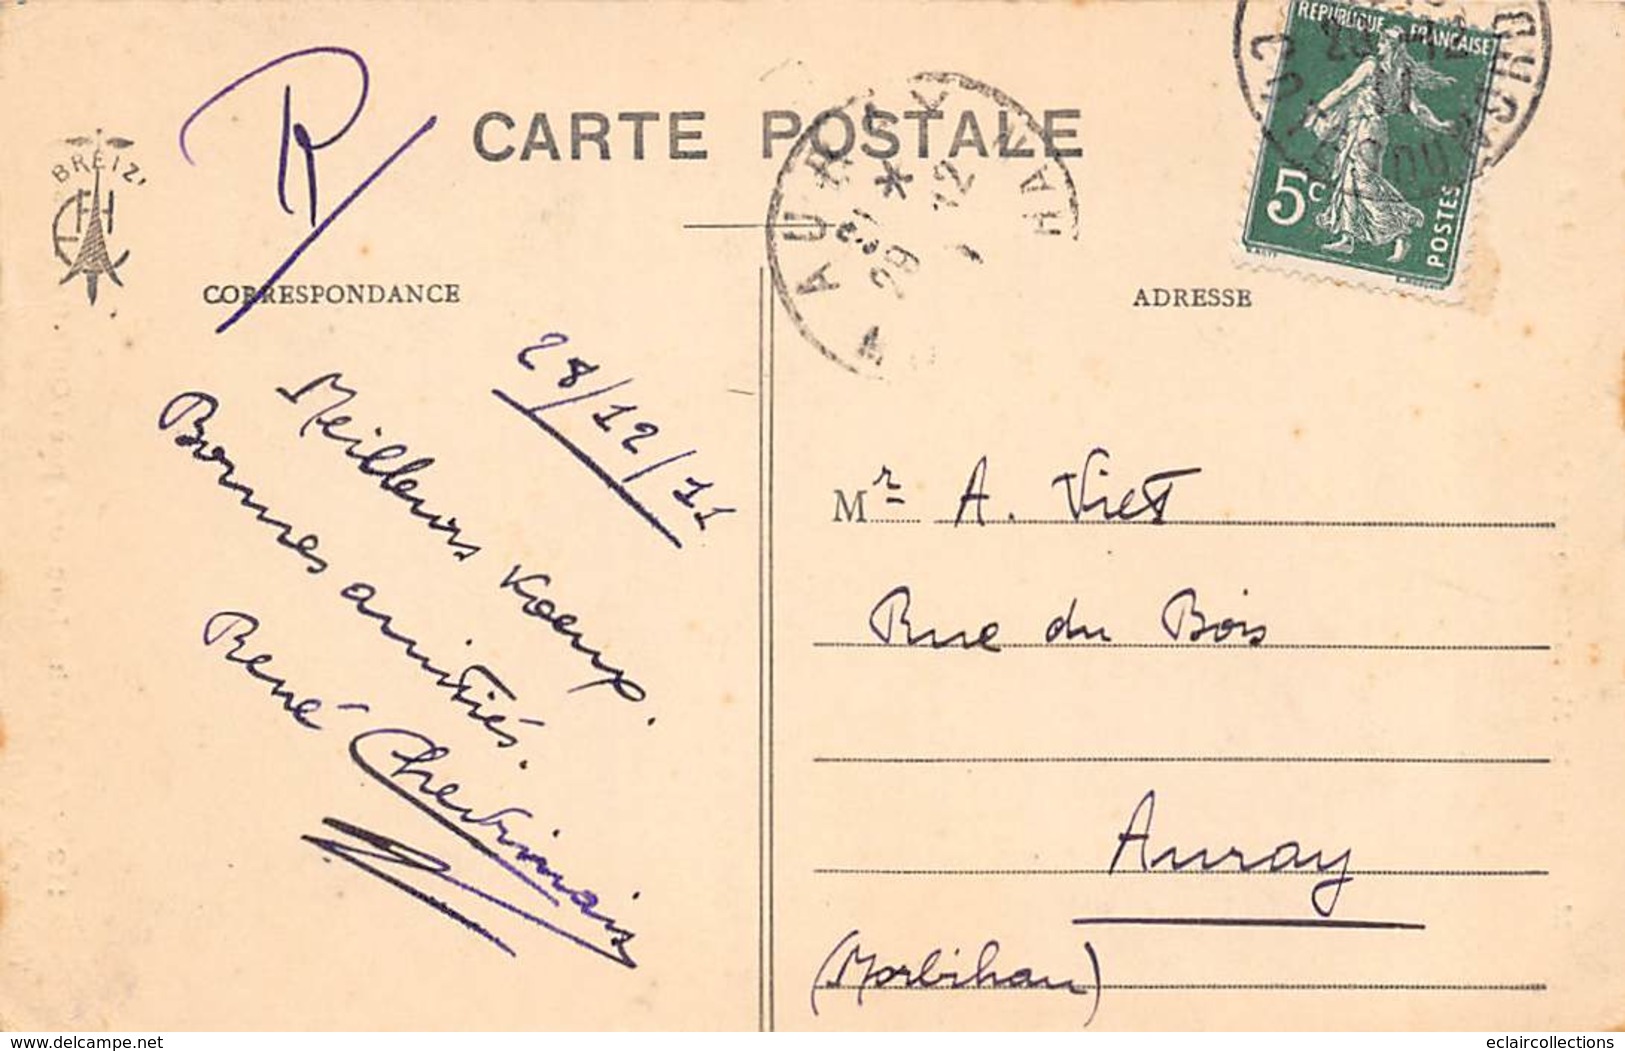 BREIZ'
CARTE POSTALE
CORRESPONDANCE
ADRESSE
REPUBLIQUE FRANÇAISE
5c
POSTES
AURAY
29 12
28/12/11
Meilleurs
Bonnes amitiés.
René
Mr A. Viet
Rue du Bois
Auray
(Morbihan)
www.delcampe.net
eclaircollections